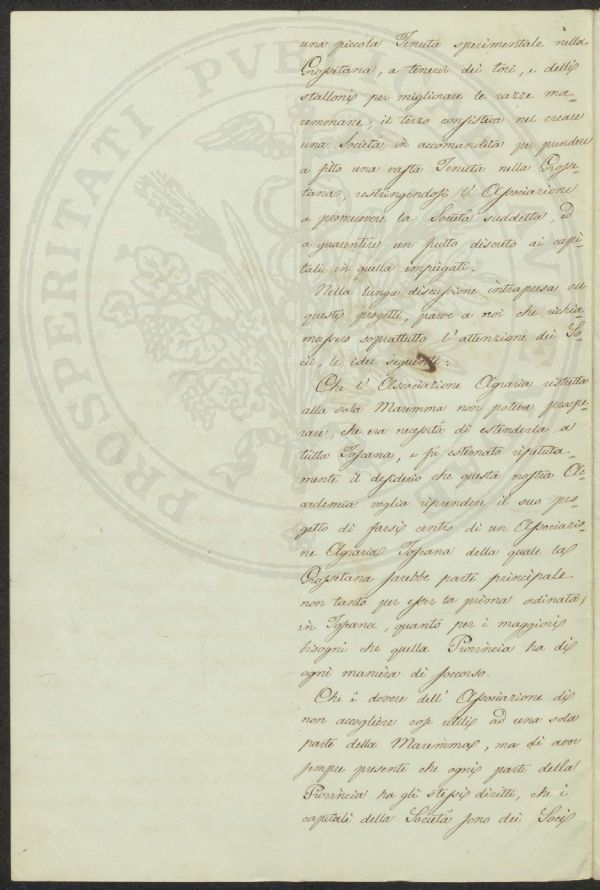 una piccola Tenuta sperimentale nella
Grossetana, a tenervi dei tori, e delli
stalloni per migliorare le razze ma=
remmane; il terzo consisteva nel creare
una Società in accomandita per prendere
a fitto una vasta Tenuta nella Grosse=
tana, restringendosi l'Associazione
a promuovere la Società suddetta, ed
a guarentire un frutto discreto ai capi=
tali in quella impiegati.
Nella lunga discussione intrapresa su
questi progetti, parve a noi che richia=
massero soprattutto l'attenzione dei So=
cii, le idee seguenti:
Che l'Associazione Agraria ristretta
alla sola Maremma non poteva prospe=
rare, che era necessità di estenderla a
tutta Toscana, e fu esternato ripetuta=
mente il desiderio che questa nostra Ac=
cademia voglia riprendere il suo pro=
getto di farsi centro di un Associazio=
ne Agraria Toscana della quale la
Grossetana sarebbe parte principale
non tanto per esser la prima ordinata
in Toscana, quanto per i maggiori
bisogni che quella Provincia ha di
ogni maniera di soccorso.
Che è dovere dell'Associazione di
non accogliere cose utili ad una sola
parte della Maremma, ma di aver
sempre presente che ogni parte della
Provincia ha gli stessi diritti, che i
capitali della Società sono dei Soci
PROSPERITATI PVBLI